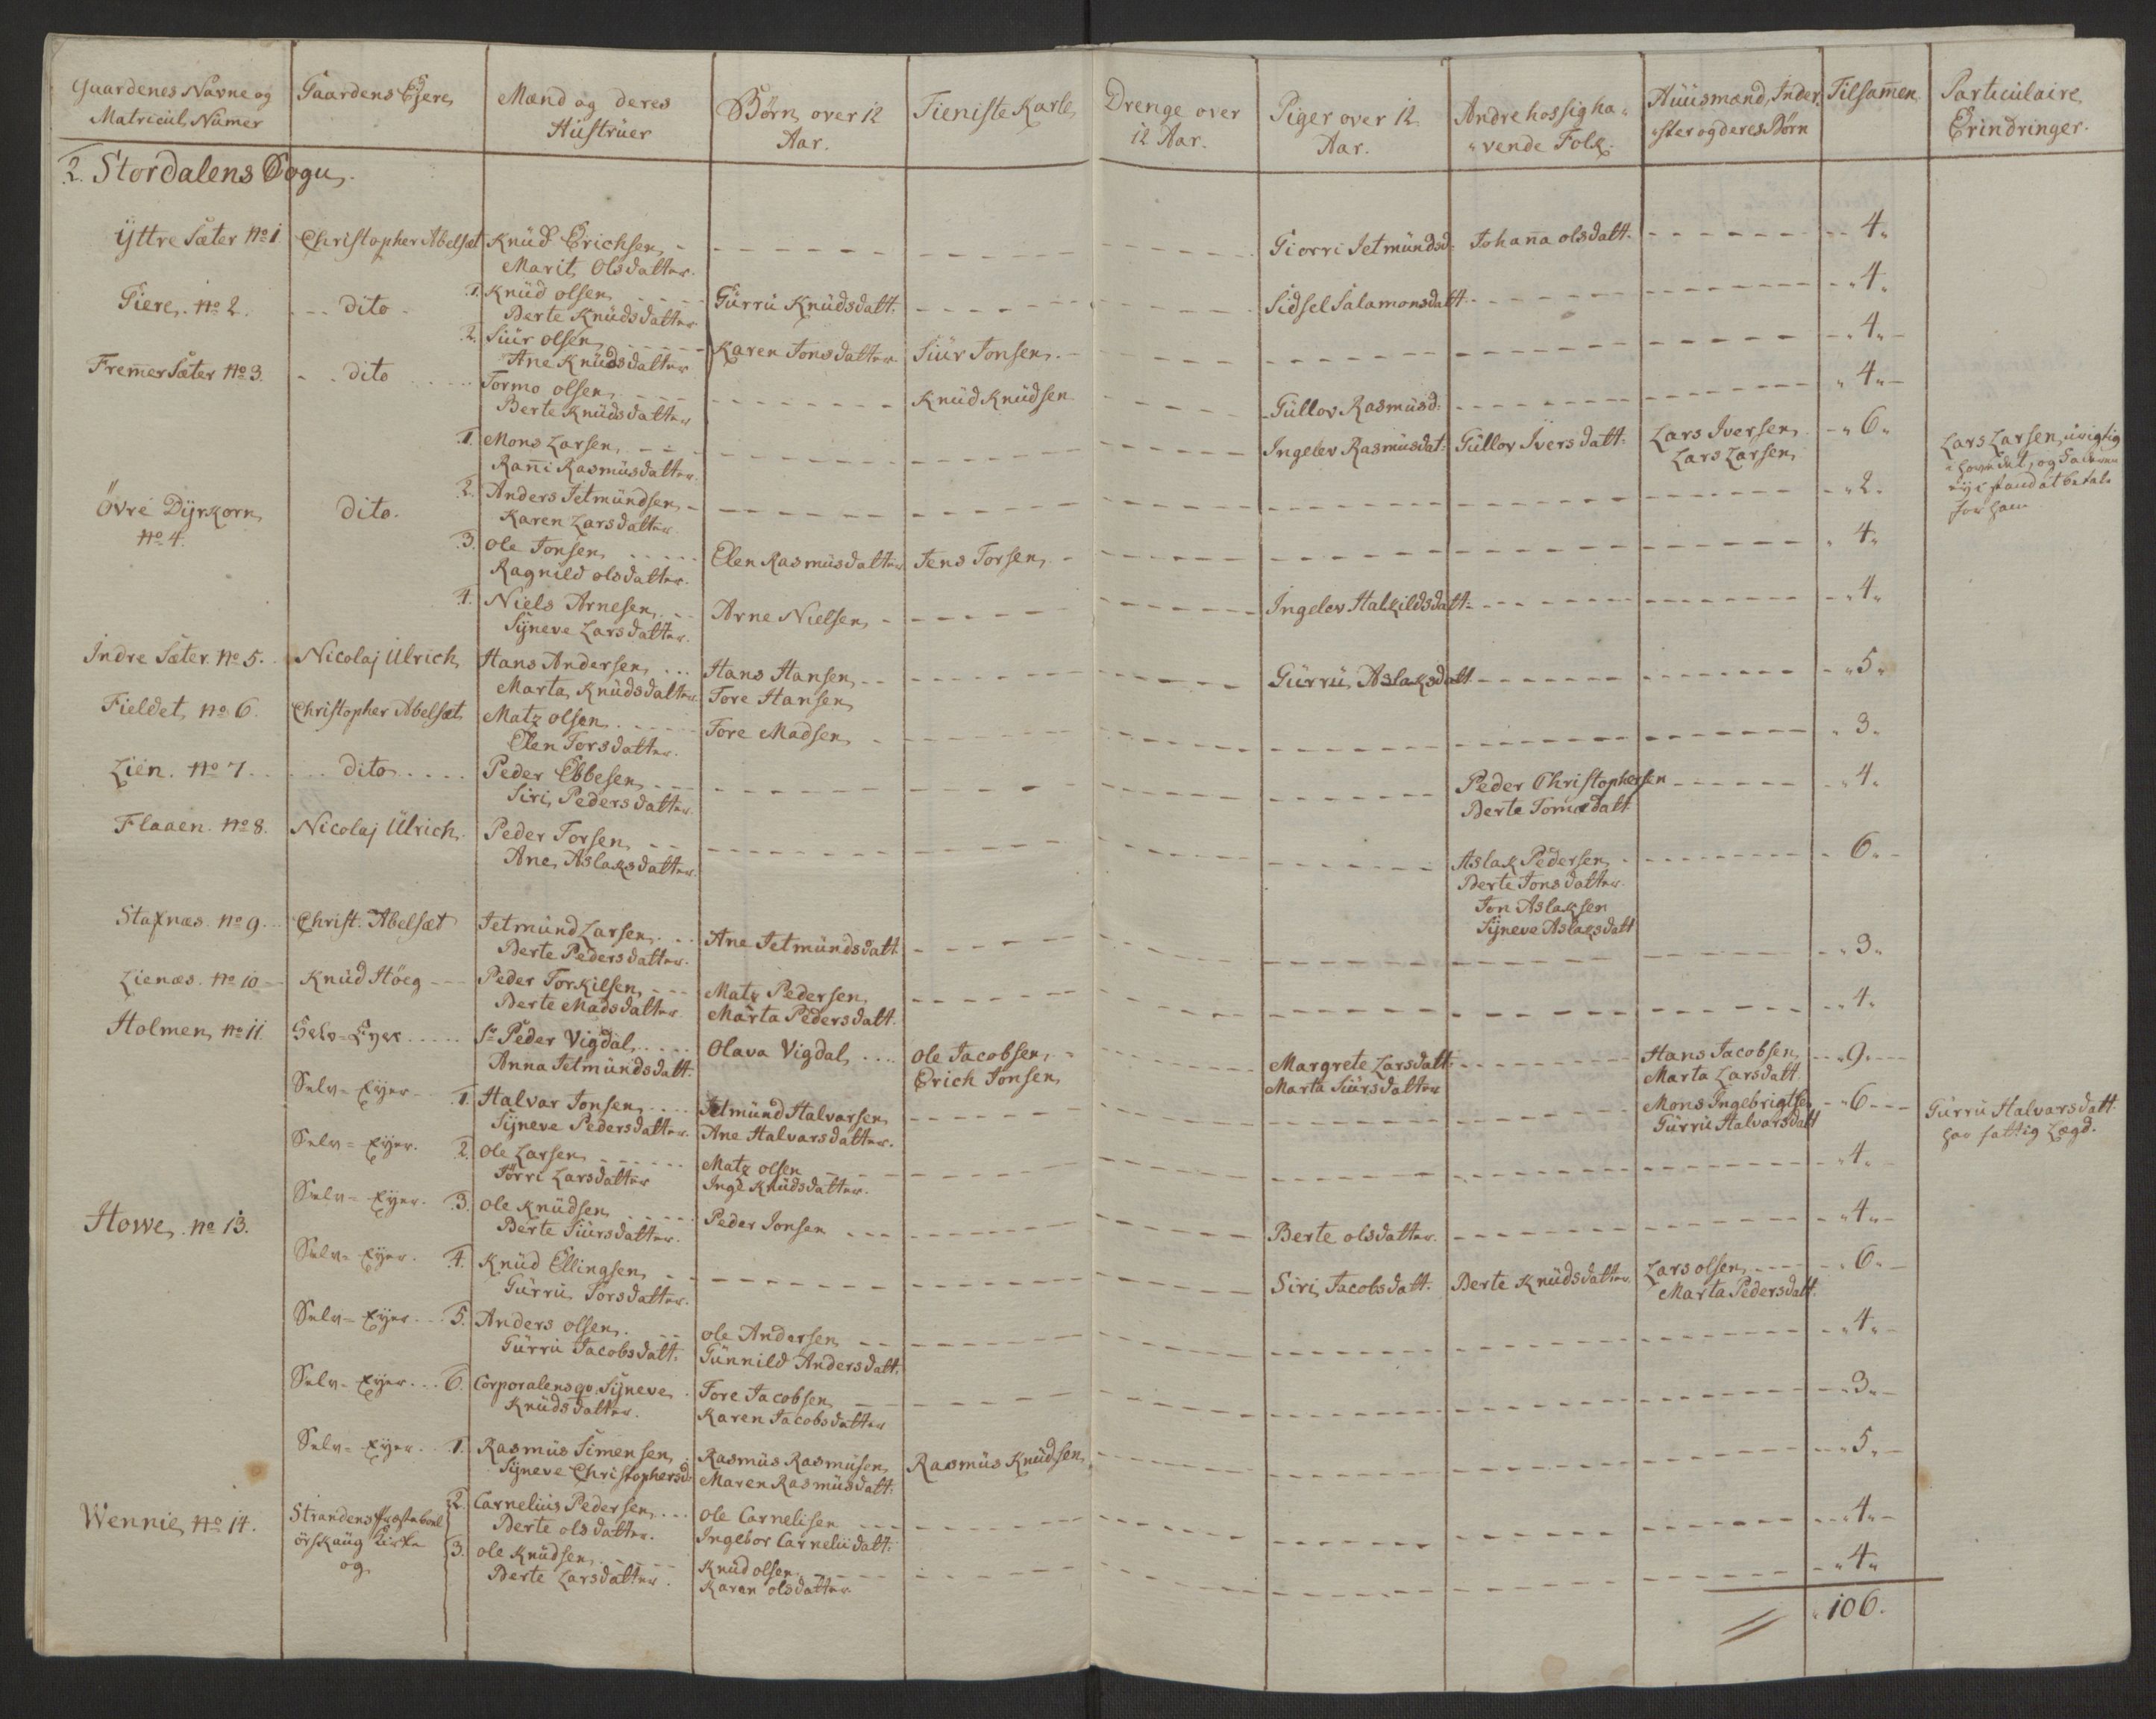 Gaardenes Navne og Matricul Numer | Gaardens Ejere | Mænd og deres Hustruer | Børn over 12 Aar. | Tieniste Karle | Drenge over 12 Aar. | Piger over 12 Aar. | Andre hos sig ha- vende Folk. | Huusmænd, Inder- ster og deres Børn | Tilsam̄en | Particulaire Erindringer.
2. Stordalens Sogn.
Ÿttre Sæter No 1 | Christopher Abelsæt | Knud Erichsen | Giorri Jetmundsd: | Johan̄a olsdatt. | 4.
Marit Olsdatter.
Giere. No 2. | dito | 1. Knud olsen | Gurru Knudsdatt. | Sidsel Salamonsdatt. | 4.
Berte Knudsdatter
2. Siur olsen | Karen Jonsdatter | Siur Jonsen. | 4.
Ane Knudsdatter
Frem̄er Sæter No 3. | dito | Tormo olsen | Knud Knudsen | Gullov Rasmusd: | 4.
Berte Knudsdatter
1. Mons Larsen | Ingelev Rasmusdat: | Gullov Iversdatt: | Lars Iversen | 6. | Lars Larsen urigtig
Ran̄i Rasmusdatter. | Lars Larsen | i hovedet, og Faderen
Øvre Dÿrkorn No 4. | dito. | 2. Anders Jetmundsen | 2. | ej i stand at betale
Karen Larsdatter. | for ham
3. Ole Jonsen | Elen Rasmusdatter | Jens Torsen | 4.
Ragnild olsdatter.
4. Niels Arnesen | Arne Nielsen | Ingelev Halkildsdatt: | 4.
Sÿneve Larsdatter.
Indre Sæter. No 5. | Nicolaj Ulrich | Hans Andersen | Hans Hansen | Gurru Aslaksdatt | 5.
Marta Knudsdatter | Tore Hansen
Fieldet No 6. | Christopher Abelsæt | Matz olsen | Tore Madsen | 3.
Elen Torsdatter.
Lien. No 7. | dito | Peder Ebbesen | Peder Christophersen | 4.
Siri Pedersdatter. | Berte Tomædatt
Flaaen. No 8. | Nicolaj Ulrich. | Peder Torsen | Aslak Pedersen | 6.
Ane Aslaksdatter. | Berte Jonsdatter.
Jon Aslaksen
Sÿneve Aslaksdatt
Stafnæs. No 9. | Christ. Abelsæt | Jetmund Larsen | Ane Jetmundsdatt. | 3.
Berte Pedersdatter.
Lienæs. No 10 | Knud Høeg | Peder Torkilsen | Matz Pedersen | 4.
Berte Madsdatter | Marta Pedersdatt.
Holmen No 11 | Selv-Eyer | Sr Peder Vigdal | Olava Vigdal | Ole Jacobsen | Margrete Larsdatt: | Hans Jacobsen | 9.
Anna Jetmundsdatt. | Erich Jonsen | Marta Siursdatter | Marta Larsdatt.
Selv-Eyer | 1. Halvar Jonsen | Jetmund Halvarsen | Mons Ingebrigtsen | 6 | Gurru Halvarsdatt.
Sÿneve Pedersdatter. | Ane Halvarsdatter. | Gurru Halvarsdatt | har fattig Lægd.
Selv-Eyer. | 2. Ole Larsen | Matz olsen | 4.
Jørri Larsdatter | Inge Knudsdatter.
Howe. No 13. | Selv-Eyer. | 3. Ole Knudsen | Peder Jonsen | Berte olsdatter. | 4.
Berte Siursdatter.
Selv-Eyer. | 4. Knud Ellingsen | Siri Jacobsdatt. | Berte Knudsdatter. | Lars olsen | 6.
Gurru Torsdatter. | Marta Pedersdatt.
Selv-Eyer | 5. Anders olsen. | ole Andersen | 4.
Gurru Jacobsdatt. | Gunnild Andersdatt.
Selv-Eyer | 6. Corporalens qv. Sÿneve | Tore Jacobsen | 3.
Knudsdatter. | Karen Jacobsdatter
Selv-Eyer. | 1. Rasmus Simensen | Rasmus Rasmusen | Rasmus Knudsen | 5.
Sÿneve Christophersd: | Maren Rasmusdatt.
Wennie No 14. | Strandens Præsteboel | 2. Carnelius Pedersen | ole Carnelisen | 4.
ørskaug Kirke | Berte olsdatter. | Ingebor Carneliidatt:
og | 3. ole Knudsen | Knud olsen | 4.
Berte Larsdatter. | Karen olsdatter.
106.